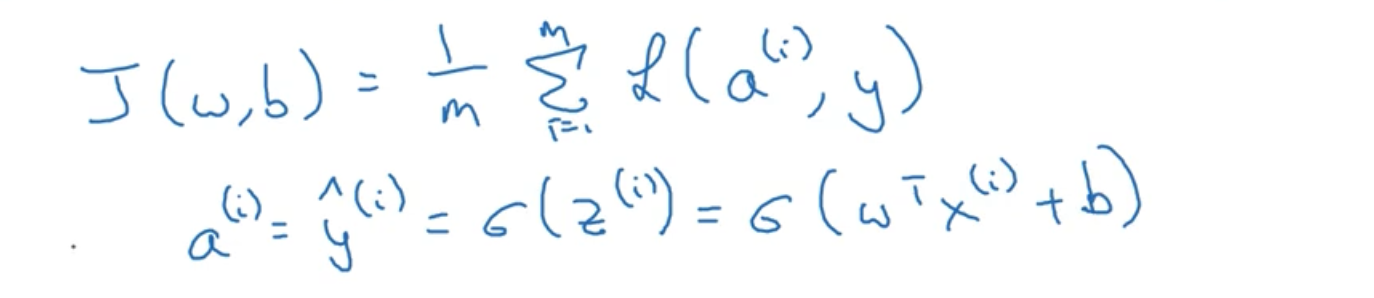 J(w,b) = 1/m Σ_{i=1}^{m} ℒ(a^{(i)}, y)
a^{(i)} = ŷ^{(i)} = σ(z^{(i)}) = σ(w^T x^{(i)} + b)